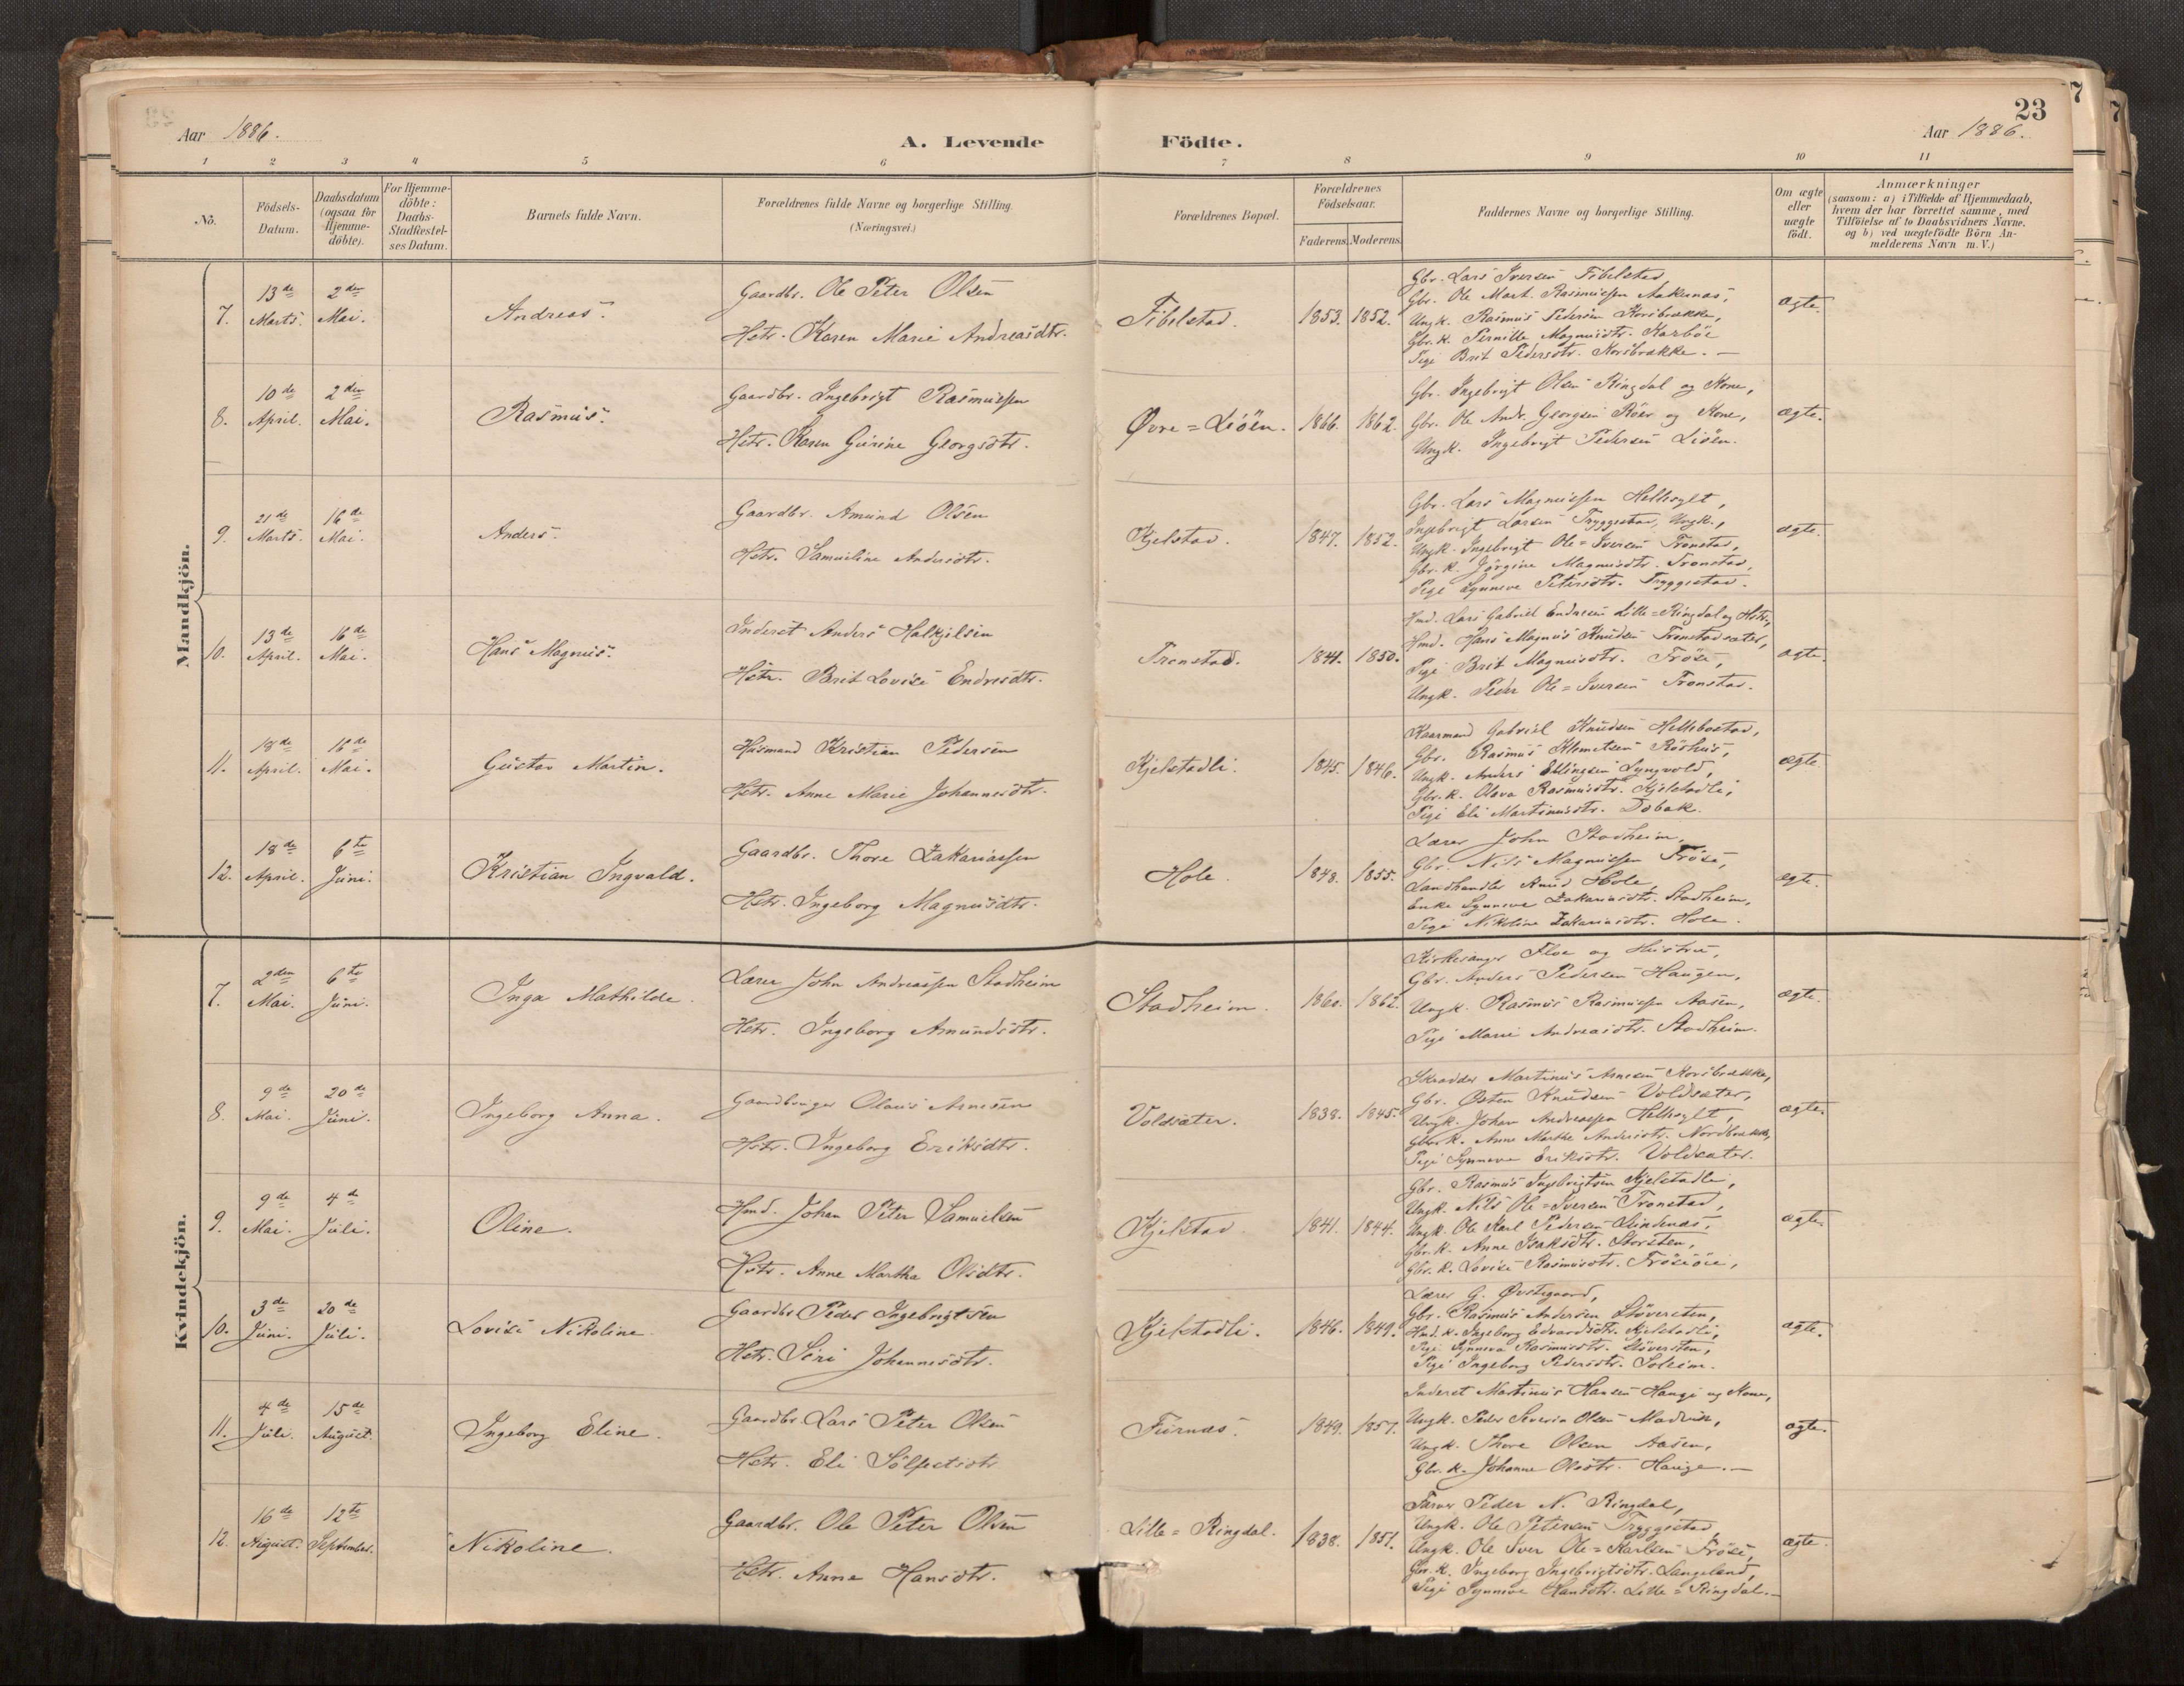 Aar 1886.
A. Levende Födte.
23
Aar 1886.
1 2 3 4 5 6 7 8 9 10 11
No.
Födsels-Datum.
Daabsdatum (ogsaa for Hjemme-döbte).
For Hjemme-döbte: Daabs-Stadfæstel-ses Datum.
Barnets fulde Navn.
Forældrenes fulde Navne og borgerlige Stilling.
(Næringsvei.)
Forældrenes Bopæl.
Forældrenes Födselsaar.
Faderens. Moderens.
Faddernes Navne og borgerlige Stilling.
Om ægte eller uægte födt.
Anmærkninger
(saasom: a) i Tilfælde af Hjemmedaab,
hvem der har forrettet samme, med
Tilföielse af to Daabsvidners Navne.
og b) ved uægtefödte Börn An-
melderens Navn m. V.)
Mandkjön.
7. 13de Marts. 2den Mai. Andreas.
Gaardbr. Ole Peter Olsen
Hstr. Karen Marie Andreasdtr.
Fibelstad. 1853. 1852.
Gbr. Lars Iversen Fibelstad,
Gbr. Ole Mart. Rasmussen Aakernæs,
Ungk. Rasmus Pedersen Korsbrække,
Gbr. K. Pernille Magnusdtr. Karböe
Pige Brit Pedersdtr. Korsbrække.
ægte.
8. 10de April. 2den Mai. Rasmus.
Gaardbr. Ingebrigt Rasmussen
Hstr. Karen Gurine Georgsdtr.
Øvre = Liöen. 1866. 1862.
Gbr. Ingebrigt Olsen Ringdal og Kone,
Gbr. Ole Andr. Georgsen Röer og Kone,
Ungk. Ingebrigt Pedersen Liöen.
ægte.
9. 21de Marts. 16de Mai. Anders.
Gaardbr. Amund Olsen
Hstr. Samueline Andersdtr.
Kjelstad. 1847. 1852.
Gbr. Lars Magnussen Hellesylt,
Ingebrigt Larsen Tryggestad, Ungk.,
Ungk. Ingebrigt Ole = Iversen Tronstad,
Gbr. K. Jörgine Magnusdtr. Tronstad,
Pige Synneve Petersdtr. Tryggestad.
ægte.
10. 13de April. 16de Mai. Hans Magnus.
Inderst Anders Halkjelsen
Hstr. Brit Lovise Endresdtr.
Tronstad. 1841. 1850.
Hmd. Lars Gabriel Endresen Lille = Ringdal og Hstr.,
Hmd. Hans Magnus Knudsen Tronstadsæter,
Pige Brit Magnusdtr. Fröse,
Ungk. Peder Ole = Iversen Tronstad.
ægte.
11. 18de April. 16de Mai. Gustav Martin.
Husmand Kristian Pedersen
Hstr. Anne Marie Johannesdtr.
Kjelstadli. 1845. 1846.
Kaarmand Gabriel Knudsen Hellebostad,
Gbr. Rasmus Klometsen Röshus,
Ungk. Anders Ellingsen Lyngvold,
Gbr. K. Olava Rasmusdtr. Kjelstadli,
Pige Eli Martinusdtr. Dobak.
ægte
12. 18de April. 6te Juni. Kristian Ingvald.
Gaardbr. Thore Zakariassen
Hstr. Ingeborg Magnusdtr.
Hole. 1848. 1855.
Lærer John Stadheim,
Gbr. Nils Magnussen Fröse,
Landhandler Knud Hole,
Enke Synneve Zakariasdtr. Stadheim,
Pige Nikoline Zakariasdtr. Hole.
ægte.
Kvindekjön.
7. 2den Mai. 6te Juni. Inga Mathilde.
Lærer John Andreassen Stadheim
Hstr. Ingeborg Amundsdtr.
Stadheim. 1860. 1862.
Kirkesanger Floe og Hustru,
Gbr. Anders Pedersen Haugen,
Ungk. Rasmus Rasmussen Aasen,
Pige Marie Andreasdtr. Stadheim.
ægte.
8. 9de Mai. 20de Juni. Ingeborg Anna.
Gaardbruger Olaus Arnesen
Hstr. Ingeborg Eriksdtr.
Voldsæter. 1838. 1845.
Skrædder Martinus Arnesen Korsbrække,
Gbr. Østen Knudsen Voldsæter,
Ungk. Johan Andreassen Hellesylt,
Gbr. K. Anne Marthe Andersdtr. Nordbrække,
Pige Synneve Eriksdtr. Voldsæter.
ægte.
9. 9de Mai. 4de Juli. Oline.
Hmd. Johan Peter Samuelsen
Hstr. Anne Martha Olsdtr.
Kjelstad. 1841. 1844.
Gbr. Rasmus Ingebrigtsen Kjelstadli,
Ungk. Nils Ole = Iversen Tronstad,
Ungk. Ole Karl Pedersen Lundenæs,
Gbr. K. Anne Isaksdtr. Storsten,
Gbr. K. Lovise Rasmusdtr. Frösöie,
ægte.
10. 3de Juni. 20de Juli. Lovise Nikoline
Gaardbr. Peder Ingebrigtsen
Hstr. Siri Johannesdtr.
Kjelstadli. 1846. 1849.
Lærer G. Øvstegaard,
Gbr. Rasmus Andersen Stöversten,
Hmd. K. Ingeborg Edvardsdtr. Kjelstadli,
Pige Synneva Rasmusdtr. Stöversten,
Pige Ingeborg Pedersdtr. Solheim.
ægte.
11. 4de Juli. 15de August. Ingeborg Eline.
Gaardbr. Lars Peter Olsen
Hstr. Eli Sölfestsdtr.
Furnæs. 1849. 1857.
Inderst Martinus Hansen Hauge og Kone,
Ungk. Peder Severin Olsen
Ungk. Thore Olsen Aasen,
Gbr. K. Johanne Olsdtr. Hauge.
ægte.
12. 16de August. 12te September. Nikoline.
Gaardbr. Ole Peter Olsen
Hstr. Anne Hansdtr.
Lille = Ringdal. 1838. 1851.
Farver Peder N. Ringdal,
Ungk. Ole Petersen Tryggestad
Ungk. Ole Iver Ole = Karlsen Fröse,
Gbr. K. Ingeborg Ingebrigtsdtr. Langeland,
Pige Synneve Hansdtr. Lille = Ringdal.
ægte.